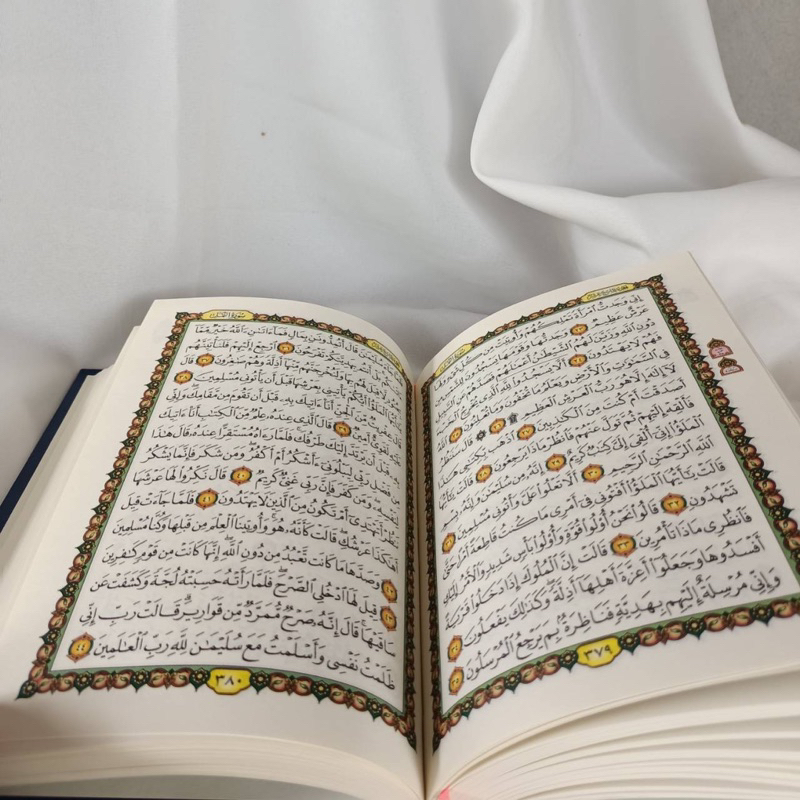 إِنِّى وَجَدتُّ ٱمْرَأَةً تَمْلِكُهُمْ وَأُوتِيَتْ مِن كُلِّ شَىْءٍ وَلَهَا
عَرْشٌ عَظِيمٌ ٢٣ وَجَدتُّهَا وَقَوْمَهَا يَسْجُدُونَ لِلشَّمْسِ مِن
دُونِ ٱللَّهِ وَزَيَّنَ لَهُمُ ٱلشَّيْطَٰنُ أَعْمَٰلَهُمْ فَصَدَّهُمْ عَنِ ٱلسَّبِيلِ
فَهُمْ لَا يَهْتَدُونَ ٢٤ أَلَّا يَسْجُدُوا۟ لِلَّهِ ٱلَّذِى يُخْرِجُ ٱلْخَبْءَ
فِى ٱلسَّمَٰوَٰتِ وَٱلْأَرْضِ وَيَعْلَمُ مَا تُخْفُونَ وَمَا تُعْلِنُونَ ٢٥
ٱللَّهُ لَآ إِلَٰهَ إِلَّا هُوَ رَبُّ ٱلْعَرْشِ ٱلْعَظِيمِ ۩ ٢٦ ۞ قَالَ سَنَنظُرُ
أَصَدَقْتَ أَمْ كُنتَ مِنَ ٱلْكَٰذِبِينَ ٢٧ ٱذْهَب بِّكِتَٰبِى هَٰذَا
فَأَلْقِهْ إِلَيْهِمْ ثُمَّ تَوَلَّ عَنْهُمْ فَٱنظُرْ مَاذَا يَرْجِعُونَ ٢٨ قَالَتْ يَٰٓأَيُّهَا
ٱلْمَلَؤُا۟ إِنِّىٓ أُلْقِىَ إِلَىَّ كِتَٰبٌ كَرِيمٌ ٢٩ إِنَّهُۥ مِن سُلَيْمَٰنَ وَإِنَّهُۥ بِسْمِ
ٱللَّهِ ٱلرَّحْمَٰنِ ٱلرَّحِيمِ ٣٠ أَلَّا تَعْلُوا۟ عَلَىَّ وَأْتُونِى مُسْلِمِينَ ٣١
قَالَتْ يَٰٓأَيُّهَا ٱلْمَلَؤُا۟ أَفْتُونِى فِىٓ أَمْرِى مَا كُنتُ قَاطِعَةً أَمْرًا حَتَّىٰ
تَشْهَدُونِ ٣٢ قَالُوا۟ نَحْنُ أُو۟لُوا۟ قُوَّةٍ وَأُو۟لُوا۟ بَأْسٍ شَدِيدٍ وَٱلْأَمْرُ إِلَيْكِ
فَٱنظُرِى مَاذَا تَأْمُرِينَ ٣٣ قَالَتْ إِنَّ ٱلْمُلُوكَ إِذَا دَخَلُوا۟ قَرْيَةً
أَفْسَدُوهَا وَجَعَلُوٓا۟ أَعِزَّةَ أَهْلِهَآ أَذِلَّةً وَكَذَٰلِكَ يَفْعَلُونَ ٣٤
وَإِنِّى مُرْسِلَةٌ إِلَيْهِم بِهَدِيَّةٍ فَنَاظِرَةٌۢ بِمَ يَرْجِعُ ٱلْمُرْسَلُونَ ٣٥
٣٧٩
سُورَةُ النَّمْلِ
فَلَمَّا جَآءَ سُلَيْمَٰنَ قَالَ أَتُمِدُّونَنِ بِمَالٍ فَمَآ ءَاتَىٰنِۦَ ٱللَّهُ خَيْرٌ مِّمَّآ
ءَاتَىٰكُم بَلْ أَنتُم بِهَدِيَّتِكُمْ تَفْرَحُونَ ٣٦ ٱرْجِعْ إِلَيْهِمْ فَلَنَأْتِيَنَّهُم
بِجُنُودٍ لَّا قِبَلَ لَهُم بِهَا وَلَنُخْرِجَنَّهُم مِّنْهَآ أَذِلَّةً وَهُمْ صَٰغِرُونَ ٣٧ قَالَ
يَٰٓأَيُّهَا ٱلْمَلَؤُا۟ أَيُّكُمْ يَأْتِينِى بِعَرْشِهَا قَبْلَ أَن يَأْتُونِى مُسْلِمِينَ ٣٨
قَالَ عِفْرِيتٌ مِّنَ ٱلْجِنِّ أَنَا۠ ءَاتِيكَ بِهِۦ قَبْلَ أَن تَقُومَ مِن مَّقَامِكَ وَإِنِّى
عَلَيْهِ لَقَوِىٌّ أَمِينٌ ٣٩ قَالَ ٱلَّذِى عِندَهُۥ عِلْمٌ مِّنَ ٱلْكِتَٰبِ أَنَا۠ ءَاتِيكَ
بِهِۦ قَبْلَ أَن يَرْتَدَّ إِلَيْكَ طَرْفُكَ فَلَمَّا رَءَاهُ مُسْتَقِرًّا عِندَهُۥ قَالَ هَٰذَا
مِن فَضْلِ رَبِّى لِيَبْلُوَنِىٓ ءَأَشْكُرُ أَمْ أَكْفُرُ وَمَن شَكَرَ فَإِنَّمَا يَشْكُرُ
لِنَفْسِهِۦ وَمَن كَفَرَ فَإِنَّ رَبِّى غَنِىٌّ كَرِيمٌ ٤٠ قَالَ نَكِّرُوا۟ لَهَا عَرْشَهَا
نَنظُرْ أَتَهْتَدِىٓ أَمْ تَكُونُ مِنَ ٱلَّذِينَ لَا يَهْتَدُونَ ٤١ فَلَمَّا جَآءَتْ قِيلَ
أَهَٰكَذَا عَرْشُكِ قَالَتْ كَأَنَّهُۥ هُوَ وَأُوتِينَا ٱلْعِلْمَ مِن قَبْلِهَا وَكُنَّا مُسْلِمِينَ
٤٢ وَصَدَّهَا مَا كَانَت تَّعْبُدُ مِن دُونِ ٱللَّهِ إِنَّهَا كَانَتْ مِن قَوْمٍ كَٰفِرِينَ
٤٣ قِيلَ لَهَا ٱدْخُلِى ٱلصَّرْحَ فَلَمَّا رَأَتْهُ حَسِبَتْهُ لُجَّةً وَكَشَفَتْ عَن
سَاقَيْهَا قَالَ إِنَّهُۥ صَرْحٌ مُّمَرَّدٌ مِّن قَوَارِيرَ قَالَتْ رَبِّ إِنِّى
ظَلَمْتُ نَفْسِى وَأَسْلَمْتُ مَعَ سُلَيْمَٰنَ لِلَّهِ رَبِّ ٱلْعَٰلَمِينَ ٤٤
٣٨٠